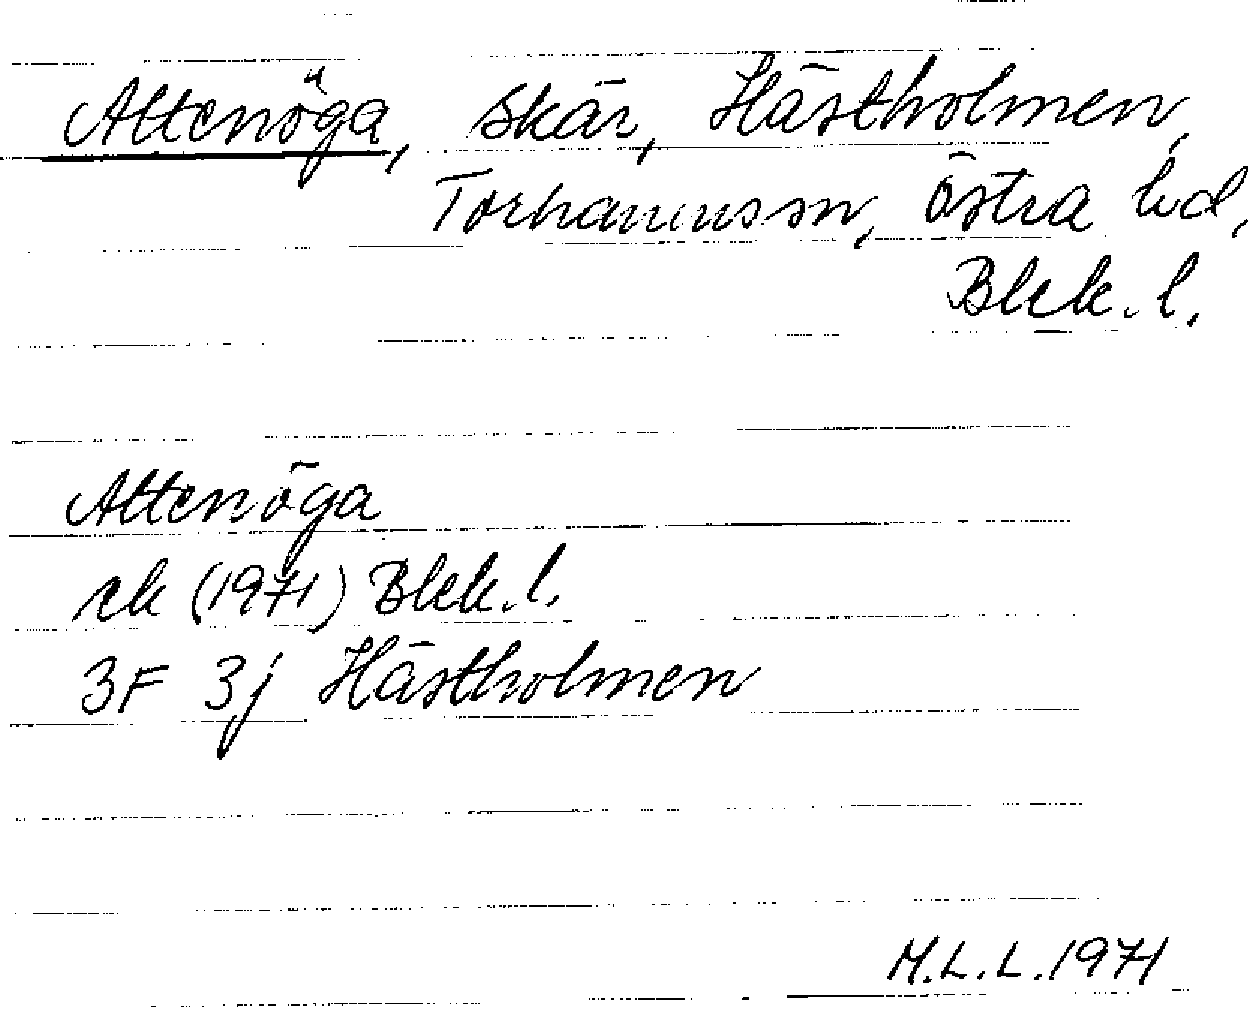 Attenöga, skär, Hästholmen,
Torhamns sn, Östra hd,
Blek. l.
Attenöga
ek (1971) Blek. l.
3F 3j Hästholmen
M.L.L. 1971